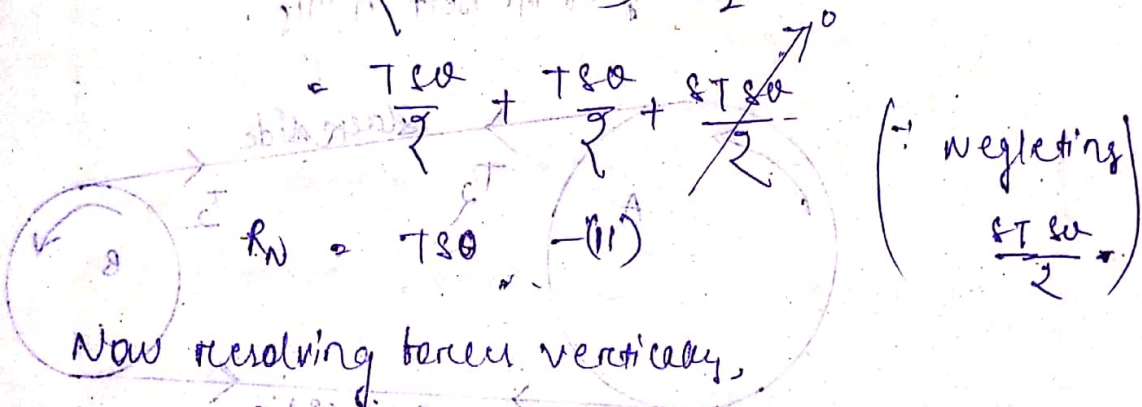 = Tδθ/2 + Tδθ/2 + δTδθ/2 → 0 (∵ Neglecting δTδθ/2.)
R_N = Tδθ -(ii)
Now resolving forces vertically,